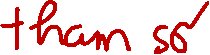 tham số